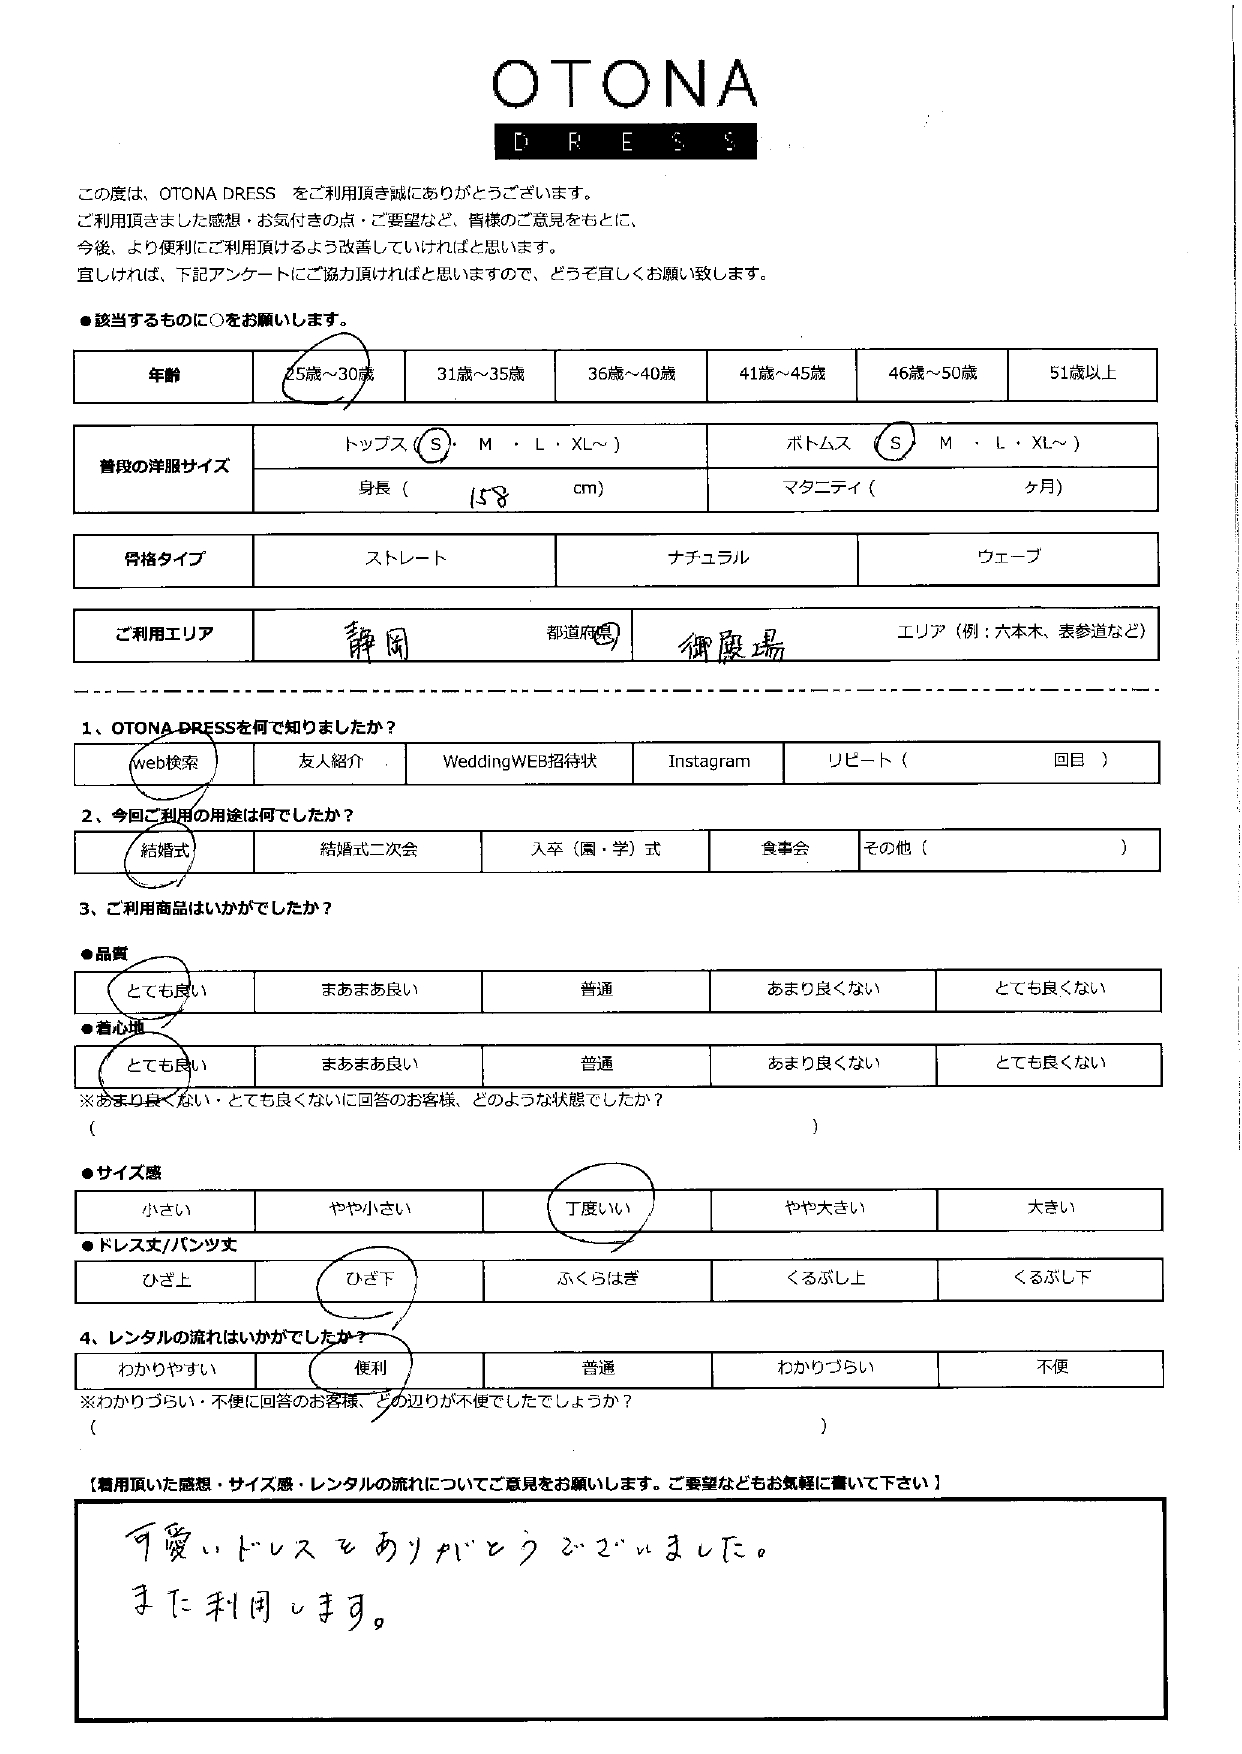 OTONA
DRESS
この度は、OTONA DRESS　をご利用頂き誠にありがとうございます。
ご利用頂きました感想・お気付きの点・ご要望など、皆様のご意見をもとに、
今後、より便利にご利用頂けるよう改善していければと思います。
宜しければ、下記アンケートにご協力頂ければと思いますので、どうぞ宜しくお願い致します。
●該当するものに○をお願いします。
年齢 25歳～30歳 31歳～35歳 36歳～40歳 41歳～45歳 46歳～50歳 51歳以上
普段の洋服サイズ トップス（S・ M ・ L・ XL～ ） ボトムス （S・ M ・ L・ XL～ ）
身長（ 158 cm） マタニティ（ ケ月）
骨格タイプ ストレート ナチュラル ウェーブ
ご利用エリア 静岡 都道府県 御殿場 エリア（例：六本木、表参道など）
1、OTONA DRESSを何で知りましたか？
web検索 友人紹介 WeddingWEB招待状 Instagram リピート（ 回目 ）
2、今回ご利用の用途は何でしたか？
結婚式 結婚式二次会 入卒（園・学）式 食事会 その他（ ）
3、ご利用商品はいかがでしたか？
●品質
とても良い まあまあ良い 普通 あまり良くない とても良くない
●着心地
とても良い まあまあ良い 普通 あまり良くない とても良くない
※あまり良くない・とても良くないに回答のお客様、どのような状態でしたか？
（ ）
●サイズ感
小さい やや小さい 丁度いい やや大きい 大きい
●ドレス丈/パンツ丈
ひざ上 ひざ下 ふくらはぎ くるぶし上 くるぶし下
4、レンタルの流れはいかがでしたか？
わかりやすい 便利 普通 わかりづらい 不便
※わかりづらい・不便に回答のお客様、どの辺りが不便でしたでしょうか？
（ ）
【着用頂いた感想・サイズ感・レンタルの流れについてご意見をお願いします。ご要望などもお気軽に書いて下さい】
可愛いドレスをありがとうございました。
また利用します。